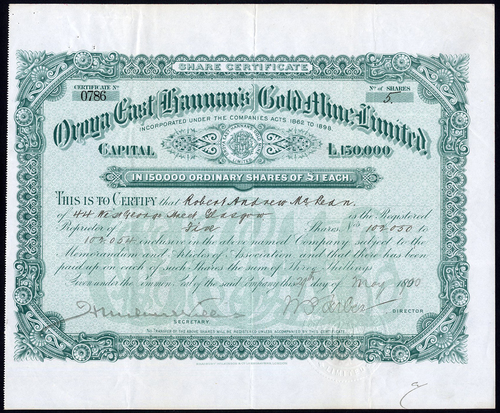 SHARE CERTIFICATE
CERTIFICATE No
0786
No OF SHARES
5
Oroya East Hannan's Gold Mine, Limited.
INCORPORATED UNDER THE COMPANIES ACTS 1862 TO 1898.
CAPITAL £150,000
IN 150,000 ORDINARY SHARES OF £1 EACH.
THIS IS TO CERTIFY that Robert Andrew
of 44 Glasgow is the Registered
Proprietor of Shares Nos 102050 to
102054 inclusive in the above named Company subject to the
Memorandum and Articles of Association and that there has been
paid up on each of such Shares the sum of Three Shillings
Given under the Common Seal of the said Company this day of May 1900
SECRETARY
DIRECTOR
No TRANSFER OF THE ABOVE SHARES WILL BE REGISTERED UNLESS ACCOMPANIED BY THIS CERTIFICATE.